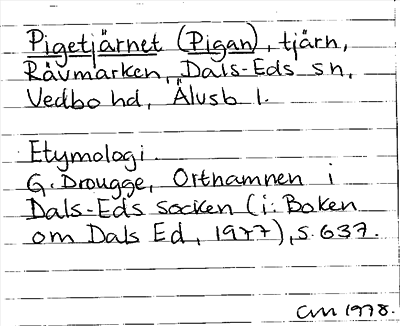 Pigetjärnet (Pigan), tjärn,
Råvmarken, Dals-Eds sn,
Vedbo hd, Älvsb l.
Etymologi
G. Drougge, Ortnamnen i
Dals-Eds socken (i: Boken
om Dals Ed, 1977), s. 637.
1978.